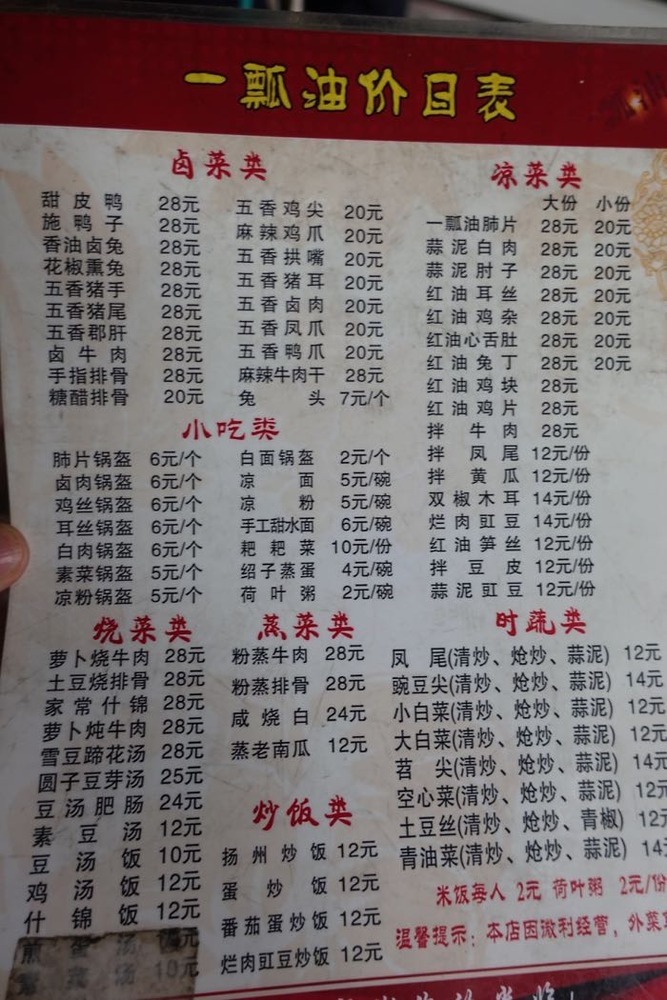 一瓢油价目表
卤菜类
甜皮鸭 28元
施鸭子 28元
香油卤兔 28元
花椒熏兔 28元
五香猪手 28元
五香猪尾 28元
五香郡肝 28元
卤牛肉 28元
手指排骨 28元
糖醋排骨 20元
五香鸡尖 20元
麻辣鸡爪 20元
五香拱嘴 20元
五香猪耳 20元
五香卤肉 20元
五香凤爪 20元
五香鸭爪 20元
麻辣牛肉干 28元
兔头 7元/个
凉菜类
大份 小份
一瓢油肺片 28元 20元
蒜泥白肉 28元 20元
蒜泥肘子 28元 20元
红油耳丝 28元 20元
红油鸡杂 28元 20元
红油心舌肚 28元 20元
红油兔丁 28元 20元
红油鸡块 28元
红油鸡片 28元
拌牛肉 28元
拌凤尾 12元/份
拌黄瓜 12元/份
双椒木耳 14元/份
烂肉豇豆 14元/份
红油笋丝 12元/份
拌豆皮 12元/份
蒜泥豇豆 12元/份
小吃类
肺片锅盔 6元/个
卤肉锅盔 6元/个
鸡丝锅盔 6元/个
耳丝锅盔 6元/个
白肉锅盔 6元/个
素菜锅盔 5元/个
凉粉锅盔 5元/个
白面锅盔 2元/个
凉面 5元/碗
凉粉 5元/碗
手工甜水面 6元/碗
耙耙菜 10元/份
绍子蒸蛋 4元/碗
荷叶粥 2元/碗
烧菜类
萝卜烧牛肉 28元
土豆烧排骨 28元
家常什锦 28元
萝卜炖牛肉 28元
雪豆蹄花汤 28元
圆子豆芽汤 25元
豆汤肥肠 24元
素豆汤 12元
豆汤饭 10元
鸡汤饭 12元
什锦饭 12元
煎蛋汤
10元
蒸菜类
粉蒸牛肉 28元
粉蒸排骨 28元
咸烧白 24元
蒸老南瓜 12元
炒饭类
扬州炒饭 12元
蛋炒饭 12元
番茄蛋炒饭 12元
烂肉豇豆炒饭 12元
时蔬类
凤尾(清炒、炝炒、蒜泥) 12元
豌豆尖(清炒、炝炒、蒜泥) 14元
小白菜(清炒、炝炒、蒜泥) 12元
大白菜(清炒、炝炒、蒜泥) 12元
苕尖(清炒、炝炒、蒜泥) 14元
空心菜(清炒、炝炒、蒜泥) 12元
土豆丝(清炒、炝炒、青椒) 12元
青油菜(清炒、炝炒、蒜泥) 14
米饭每人 2元 荷叶粥 2元/份
温馨提示：本店因微利经营，外菜